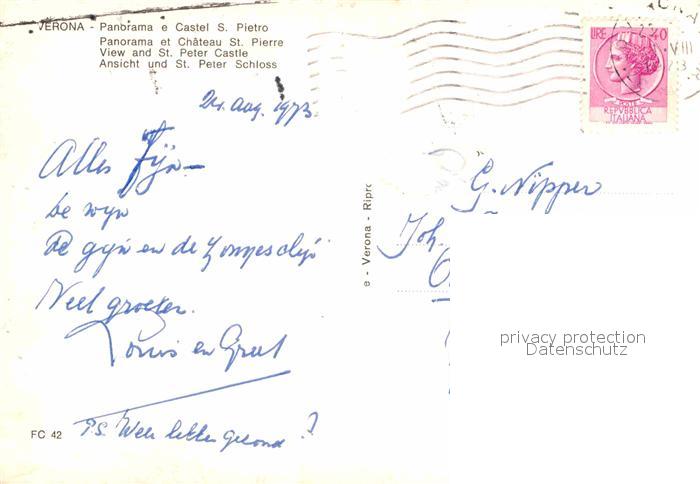 VERONA - Panorama e Castel S. Pietro
Panorama et Château St. Pierre
View and St. Peter Castle
Ansicht und St. Peter Schloss
24. aug. 1973
Alles fijn
de wijn
en de zonneschijn
Veel groeten.
Louis en Greet
P.S. Weer lekker gezond?
FC 42
e - Verona - Ripro
LIRE 40
POSTE
REPVBBLICA
ITALIANA
VIII
G. Nipper
Joh.
privacy protection
Datenschutz